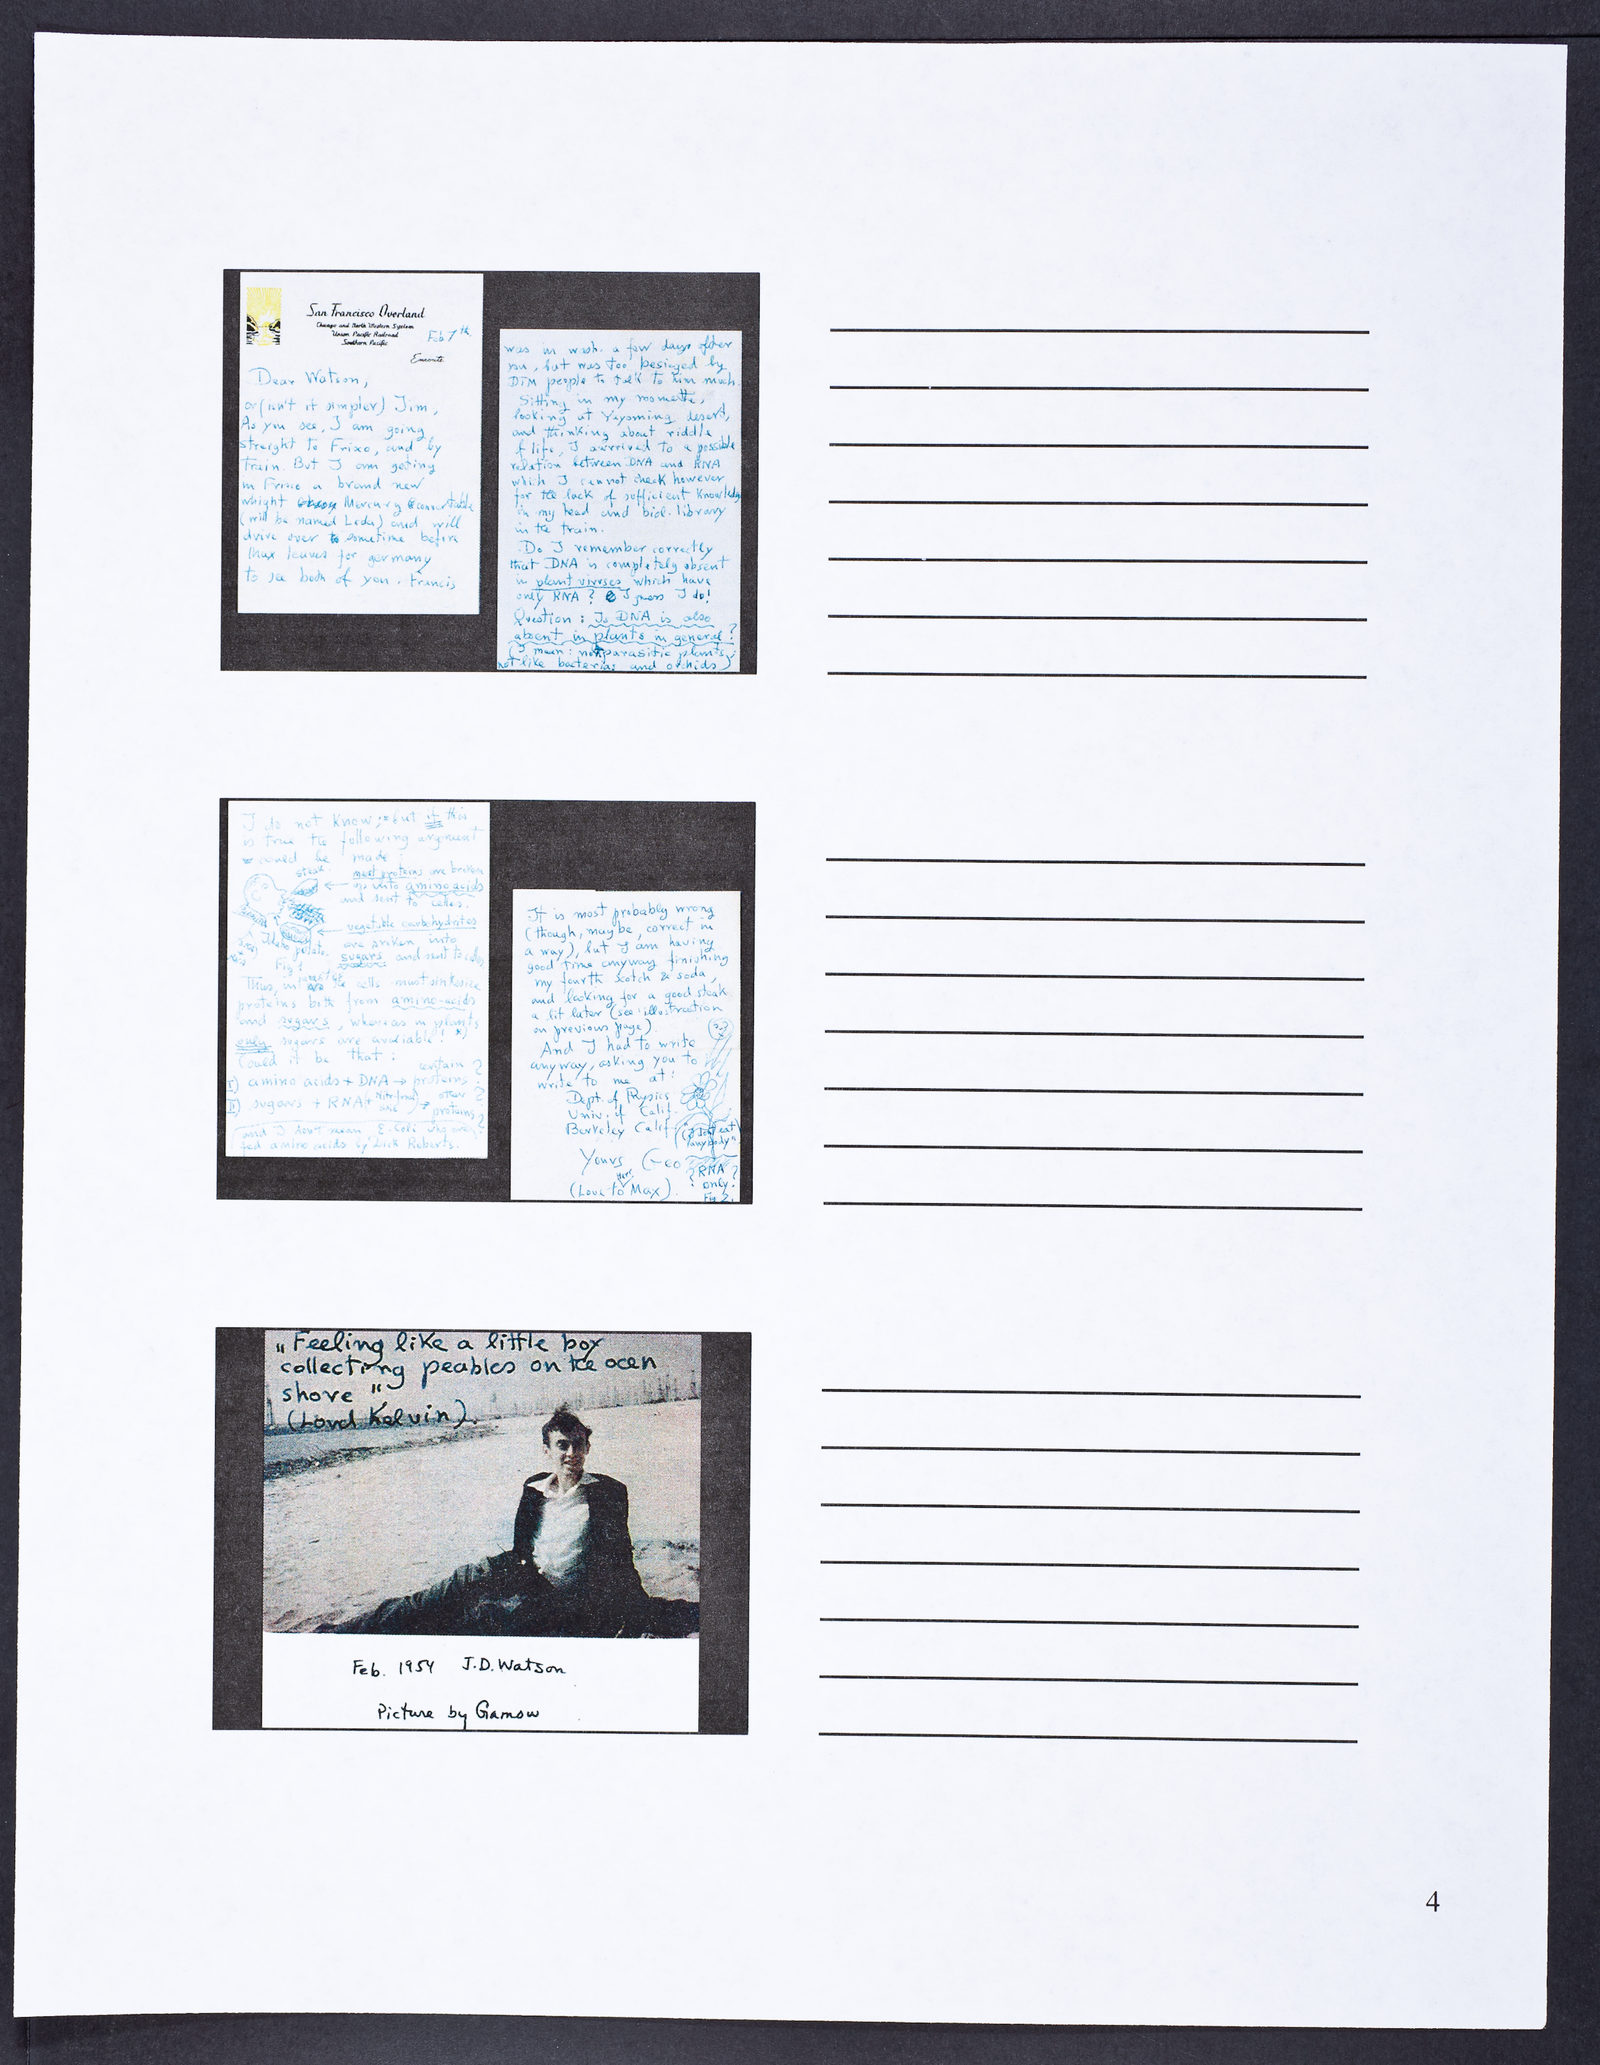 San Francisco Overland
Chicago and North Western System
Union Pacific Railroad
Southern Pacific
Feb 7th.
Enroute
Dear Watson,
or (isn't it simpler) Jim,
As you see, I am going
streight to Frixo, and by
train. But I am geting
in Frixo a brand new
whight Mercury convertable
(will be named Leda) and will
drive over to sometime before
Max leaves for germany
to see both of you. Francis
was in wash. a few days after
you, but was too besieged by
DTM people to talk to him much.
Sitting in my roomette,
looking at Yeyoming desert,
and thinking about riddle
of life, I averived to a possible
relation between DNA and RNA
which I cannot check however
for the lack of sufficient knowledge
in my head and biol. library
in the train.
Do I remember correctly
that DNA is completely absent
in plant viruses which have
only RNA? I guess I do!
Question: Is DNA is also
absent in plants in general?
(I mean: nonparasitic plants,
not like bacterias and orchids)
I do not know; but if this
is true the following argument
could be made:
steak.
meet proteins are broken
up into amino acids
and sent to cells.
vegetable carbohydrates
are broken into
sugars and sent to cells
Idaho potato.
Fig 1
Thus, in the cells must sintesize
proteins both from amino-acids
and sugars, whereas in plants
only sugars are avaliable! *)
Could it be that:
I) amino acids + DNA → certain proteins?
II) sugars + RNA (+ nitrogen) → other proteins?
and I don't mean E. Coli who are
fed amino acids by Dick Roberts.
It is most probably wrong
(though, maybe, correct in
a way), but I am having
good time anyway finishing
my fourth scotch & soda,
and looking for a good steak
a lit later (see illustration
on previous page).
And I had to write
anyway, asking you to
write to me at:
Dept. of Physics
Univ. of Calif.
Berkeley Calif.
("I dont eat
anybody"
Yours Geo
(Love to Max).
? RNA ?
only!
Fig 2.
„Feeling like a little boy
collecting peables on the ocen
shore "
(Lord Kelvin).
Feb. 1954 J.D. Watson
Picture by Gamow
4